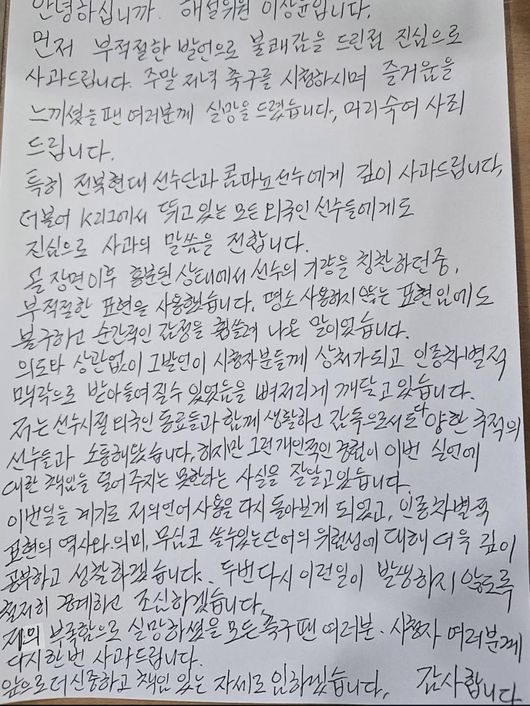 안녕하십니까. 해설위원 이상윤입니다.
먼저 부적절한 발언으로 불쾌감을 드린점 진심으로
사과드립니다. 주말저녁 축구를 시청하시며 즐거움을
느끼셨을 팬 여러분께 실망을 드렸습니다, 머리숙여 사죄
드립니다.
특히 전북현대 선수단과 콤파뇨선수에게 깊이 사과드립니다,
더불어 K리그에서 뛰고있는 모든 외국인 선수들에게도
진심으로 사과의 말씀을 전합니다.
골 장면이후 흥분된 상태에서 선수의 기량을 칭찬하던중,
부적절한 표현을 사용했습니다. 평소 사용하지 않는 표현임에도
불구하고 순간적인 감정을 휩쓸려 나온 말이었습니다.
의도와 상관없이 그발언이 시청자분들께 상처가되고 인종차별적
맥락으로 받아들여질수 있었음을 뼈저리게 깨닫고있습니다.
저는 선수시절 외국인 동료들과 함께 생활하고 감독으로서도 다양한 국적의
선수들과 소통해왔습니다, 하지만 그런 개인적인 경험이 이번 실언에
대한 책임을 덜어주지는 못한다는 사실을 잘알고있습니다.
이번일을 계기로 저의언어 사용을 다시 돌아보게 되었고, 인종차별적
표현의 역사와 의미, 무심코 쓸수있는단어의 위험성에 대해 더욱 깊이
공부하고 성찰하겠습니다. 두번다시 이런일이 발생하지 않도록
철저히 경계하고 조심하겠습니다.
저의 부족함으로 실망하셨을 모든축구팬 여러분·시청자 여러분께
다시한번 사과드립니다.
앞으로더신중하고 책임 있는 자세로 임하겠습니다, 감사합니다